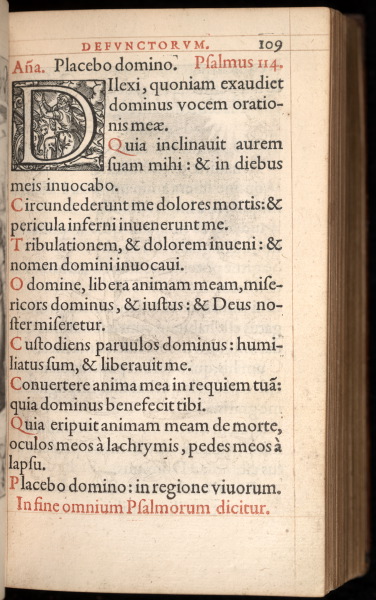 DEFVNCTORVM. 109
Aña. Placebo domino. Psalmus 114.
DIlexi, quoniam exaudiet
dominus vocem oratio-
nis meæ.
Quia inclinauit aurem
suam mihi : & in diebus
meis inuocabo.
Circundederunt me dolores mortis: &
pericula inferni inuenerunt me.
Tribulationem, & dolorem inueni : &
nomen domini inuocaui.
O domine, libera animam meam, mise-
ricors dominus, & iustus : & Deus no-
ster miseretur.
Custodiens paruulos dominus : humi-
liatus sum, & liberauit me.
Conuertere anima mea in requiem tuã:
quia dominus benefecit tibi.
Quia eripuit animam meam de morte,
oculos meos à lachrymis, pedes meos à
lapsu.
Placebo domino: in regione viuorum.
In fine omnium Psalmorum dicitur.